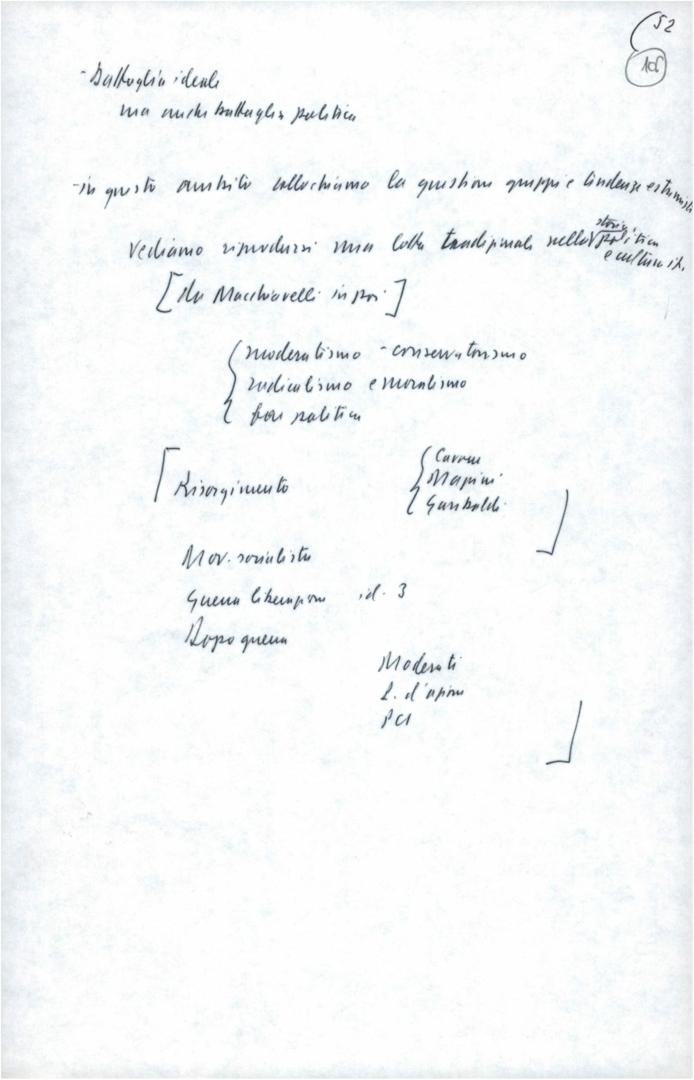 52
108
- Battaglia ideale
ma anche battaglia politica
- in questo ambito collochiamo la questione gruppi e tendenze estremiste
Vediamo riprodursi una lotta tradizionale nella storia politica
e culturale it.
[da Macchiavelli in poi]
moderatismo - conservatorismo
radicalismo e moralismo
politica
Risorgimento
Cavour
Mazzini
Garibaldi
Mov. socialista
Guerra liberazione id. 3
Dopo guerra
Moderati
P. d'azione
PCI